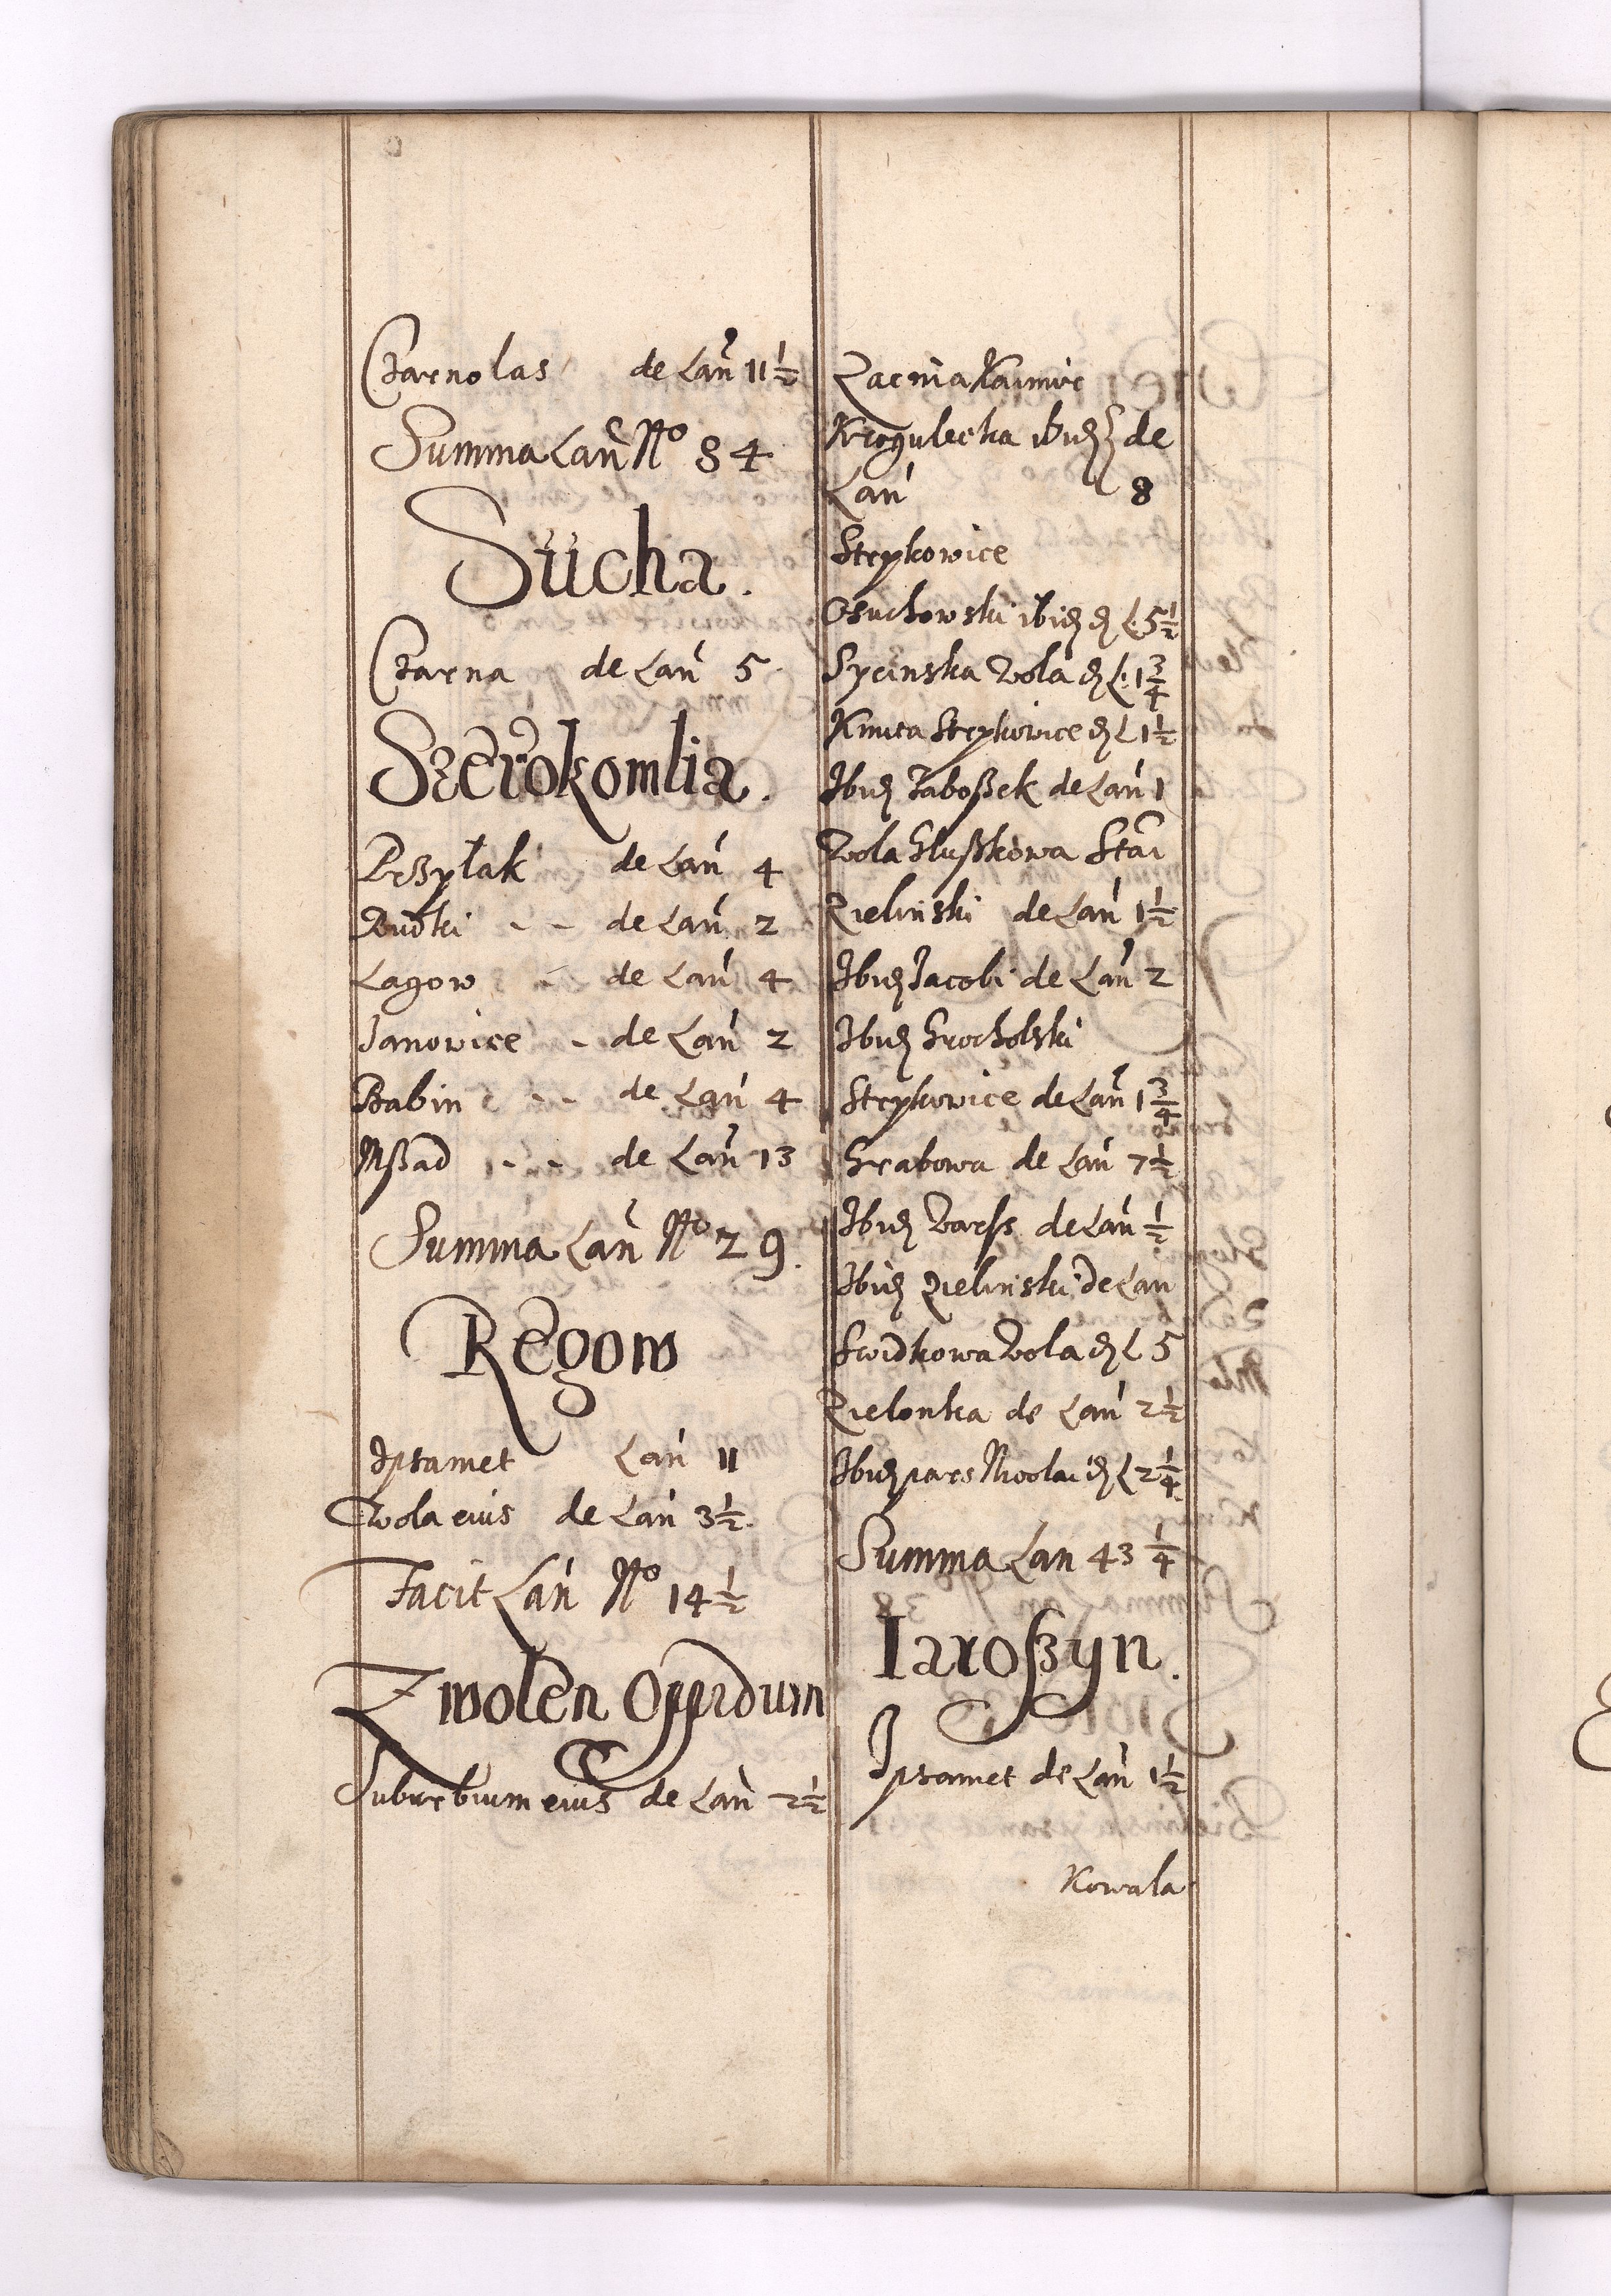 Czarnolas de Lan 11 1/2
Summa Lan No 84
Sucha.
Czarna de Lan 5
Szerokomlia.
Przyłak de Lan 4
Rudki - - de Lan 2
Lagow - de Lan 4
Janowice - de Lan 2
Babin - - de Lan 4
Mßad - - de Lan 13
Summa Lan No 29.
Regow
Ipsamet Lan 11
Wola eius de Lan 3 1/2.
Facit Lan No 14 1/2
Zwolen Oppidum
Suburbium eius de Lan 2 1/2
Krogulecka ibid de
Lan 8
Strykowice
Osuchowski ibid d L. 5 1/2
Sycinska Wola d L. 1 3/4
Kmita Strykowice d L 1 1/2
Ibid Jaboßek de Lan 1
Wola Slußkowa Sta
Zielinski de Lan 1 1/2
Ibid Jacobi de Lan 2
Ibid Grocholski
Strykowice de Lan 1 3/4
Grabowa de Lan 7 1/2
Ibid de Lan 1/2
Ibid Zielinski de Lan
Swidkowa Wola d L 5
Zielonka de Lan 2 1/2
Ibid pars Nicolai d L 2 1/4.
Summa Lan 43 1/4
Iaroßyn.
Ipsamet de Lan 1 1/2
Kowala